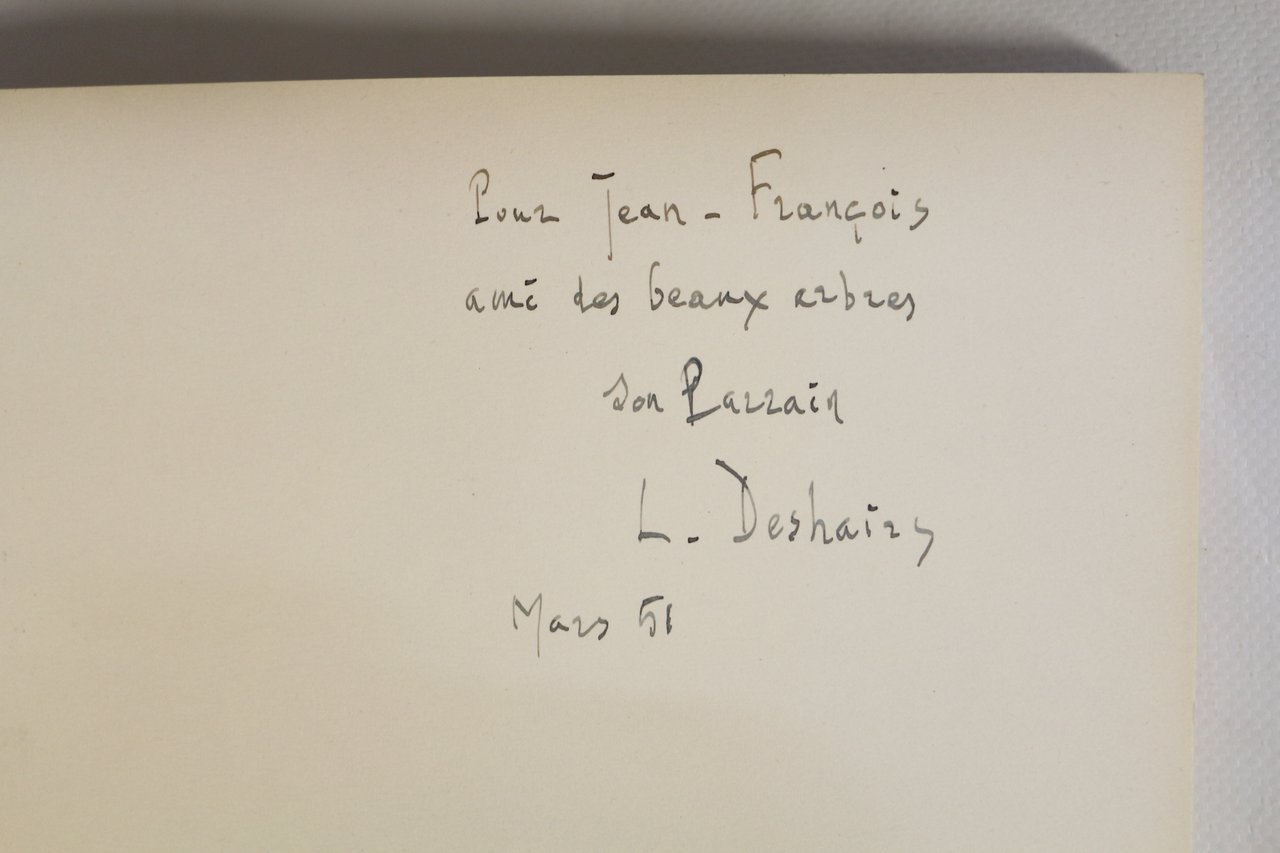 Pour Jean - François
ami des beaux arbres
son Parrain
L. Deshairs
Mars 51